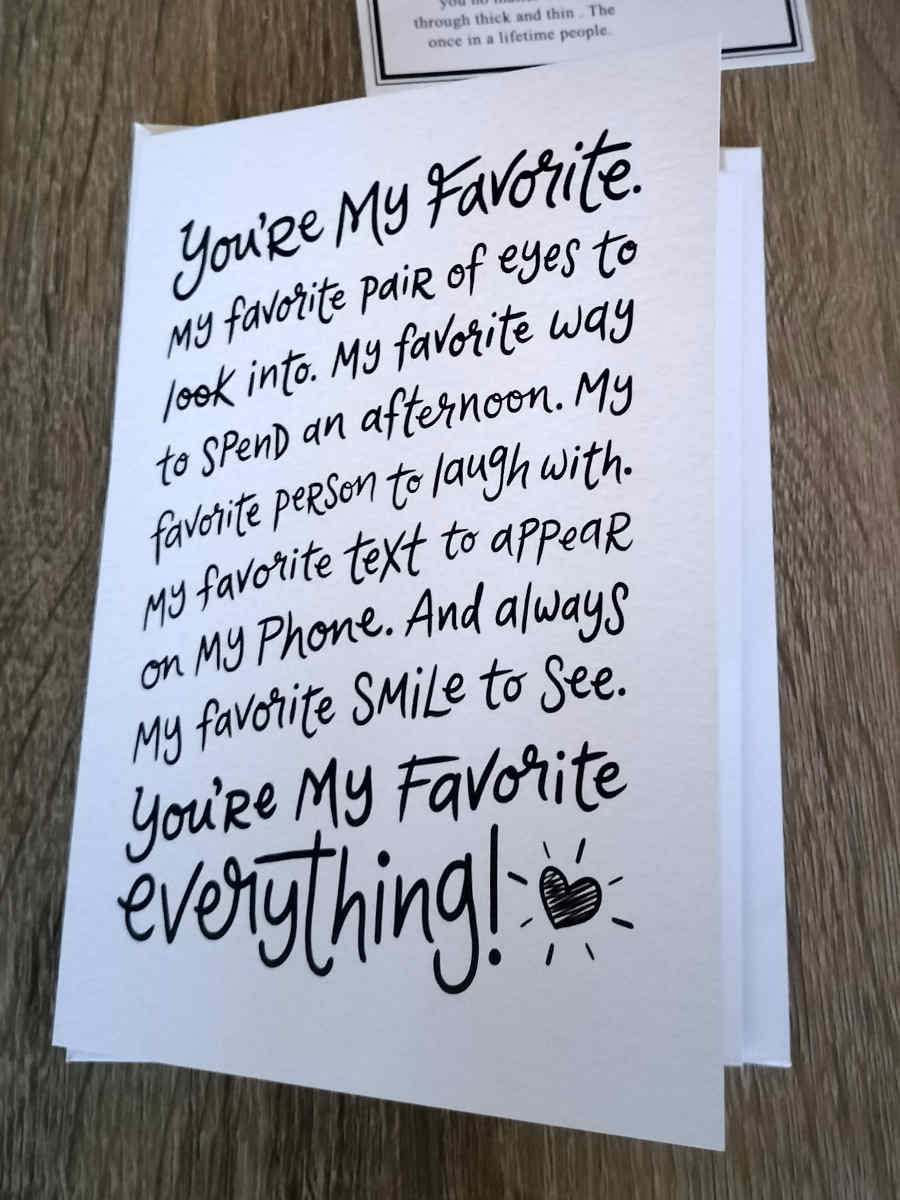 you no
through thick and thin . The
once in a lifetime people.
You're My Favorite.
My favorite pair of eyes to
look into. My favorite way
to spend an afternoon. My
favorite person to laugh with.
My favorite text to appear
on my phone. And always
my favorite smile to see.
You're My Favorite
everything!